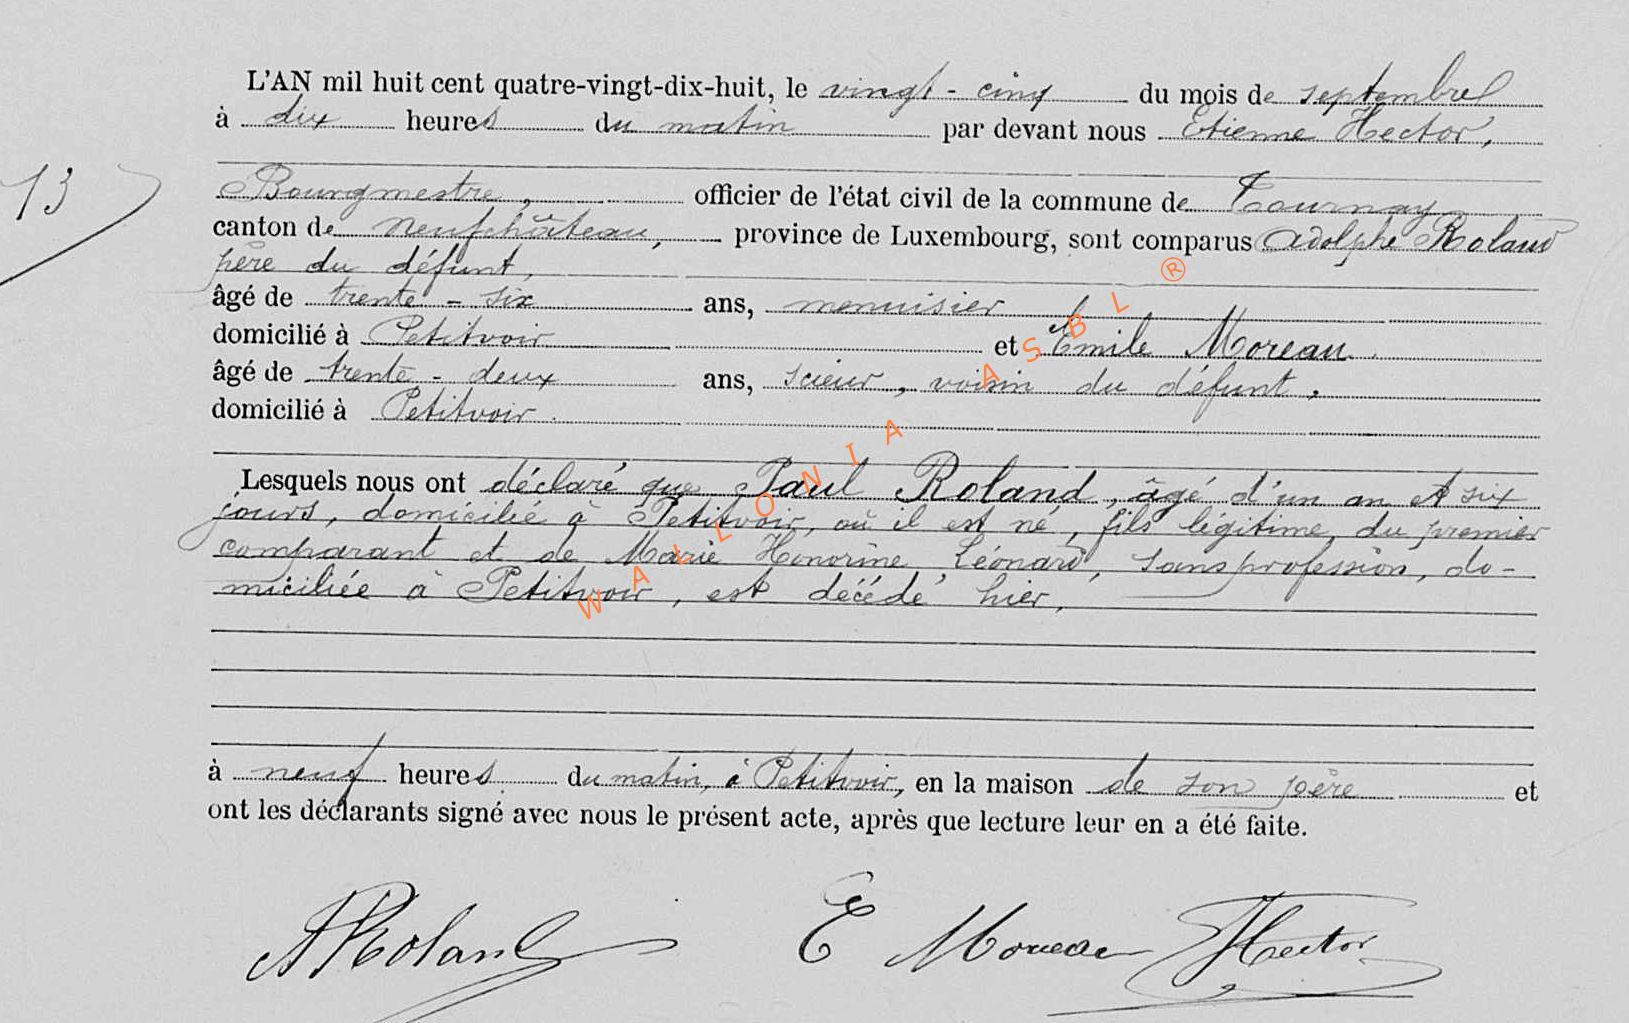 L'AN mil huit cent quatre-vingt-dix-huit, le vingt-cinq du mois de septembre
à dix heures du matin par devant nous Etienne Hector,
13
Bourgmestre, officier de l'état civil de la commune de Tournay
canton de Neufchâteau, province de Luxembourg, sont comparus Adolphe Roland
père du défunt,
âgé de trente-six ans, menuisier
domicilié à Petitvoir et Emile Moreau
âgé de trente-deux ans, scieur, voisin du défunt,
domicilié à Petitvoir.
Lesquels nous ont déclaré que Paul Roland, âgé d'un an et six
jours, domicilié à Petitvoir, où il est né, fils légitime du premier
comparant et de Marie Honorine Léonard, sans profession, do-
miciliée à Petitvoir, est décédé hier,
à neuf heures du matin, à Petitvoir, en la maison de son père et
ont les déclarants signé avec nous le présent acte, après que lecture leur en a été faite.
A Roland E Moreau Hector
WALLONIA ASBL ®